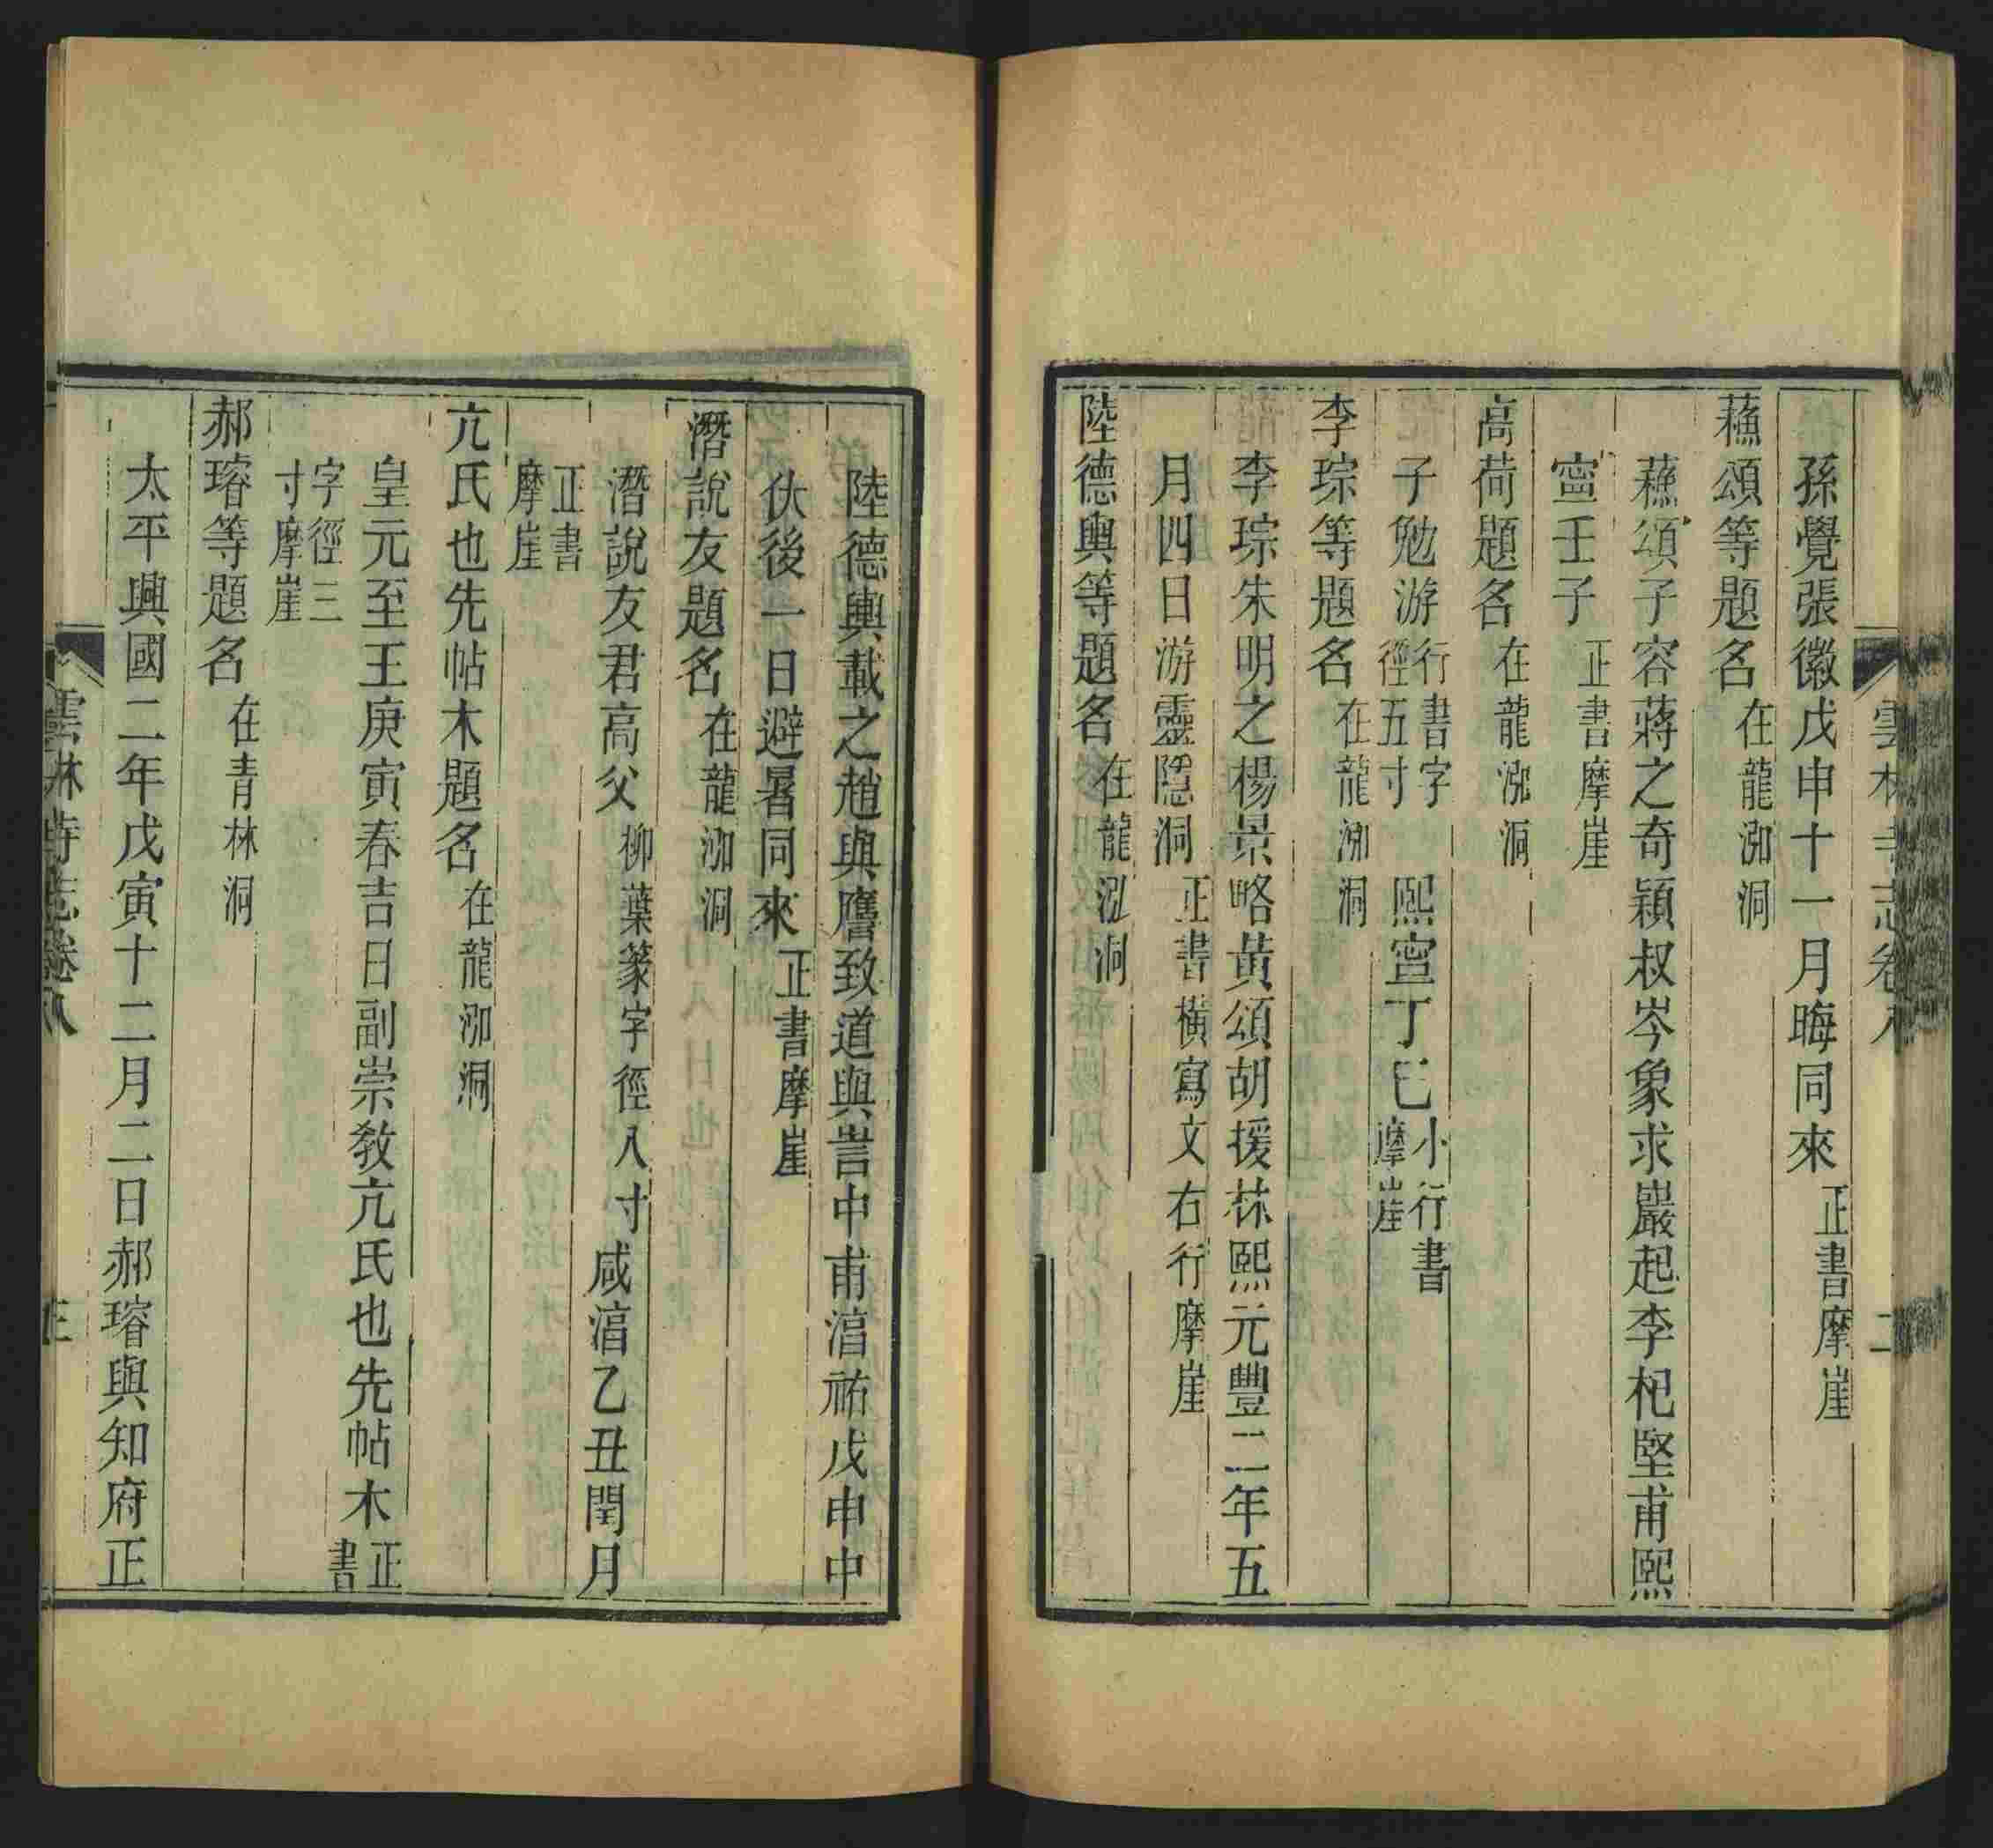 孫覺張徽戊申十一月晦同來正書摩崖
蘓頌等題名在龍泓洞
蘓頌子容蔣之奇穎叔岑象求巖起李杞堅甫熙
寍壬子正書摩崖
高荷題名在龍泓洞
子勉游行書字徑五寸熙寍丁巳小行書摩崖
李琮等題名在龍泓洞
李琮朱明之楊景略黃頌胡援秝熙元豐二年五
月四日游靈隱洞正書橫寫文右行摩崖
陸德輿等題名在龍泓洞
雲林寺志卷八
二
陸德輿載之趙與𥲅致道與訔中甫湻祐戊申中
伏後一日避暑同來正書摩崖
潛說友題名在龍泓洞
潛說友君高父柳葉篆字徑八寸咸湻乙丑閏月
正書摩崖
亢氏也先帖木題名在龍泓洞
皇元至王庚寅春吉日副崇教亢氏也先帖木正書
字徑三寸摩崖
郝璿等題名在青林洞
太平興國二年戊寅十二月二日郝璿與知府正
雲林寺志卷八
三